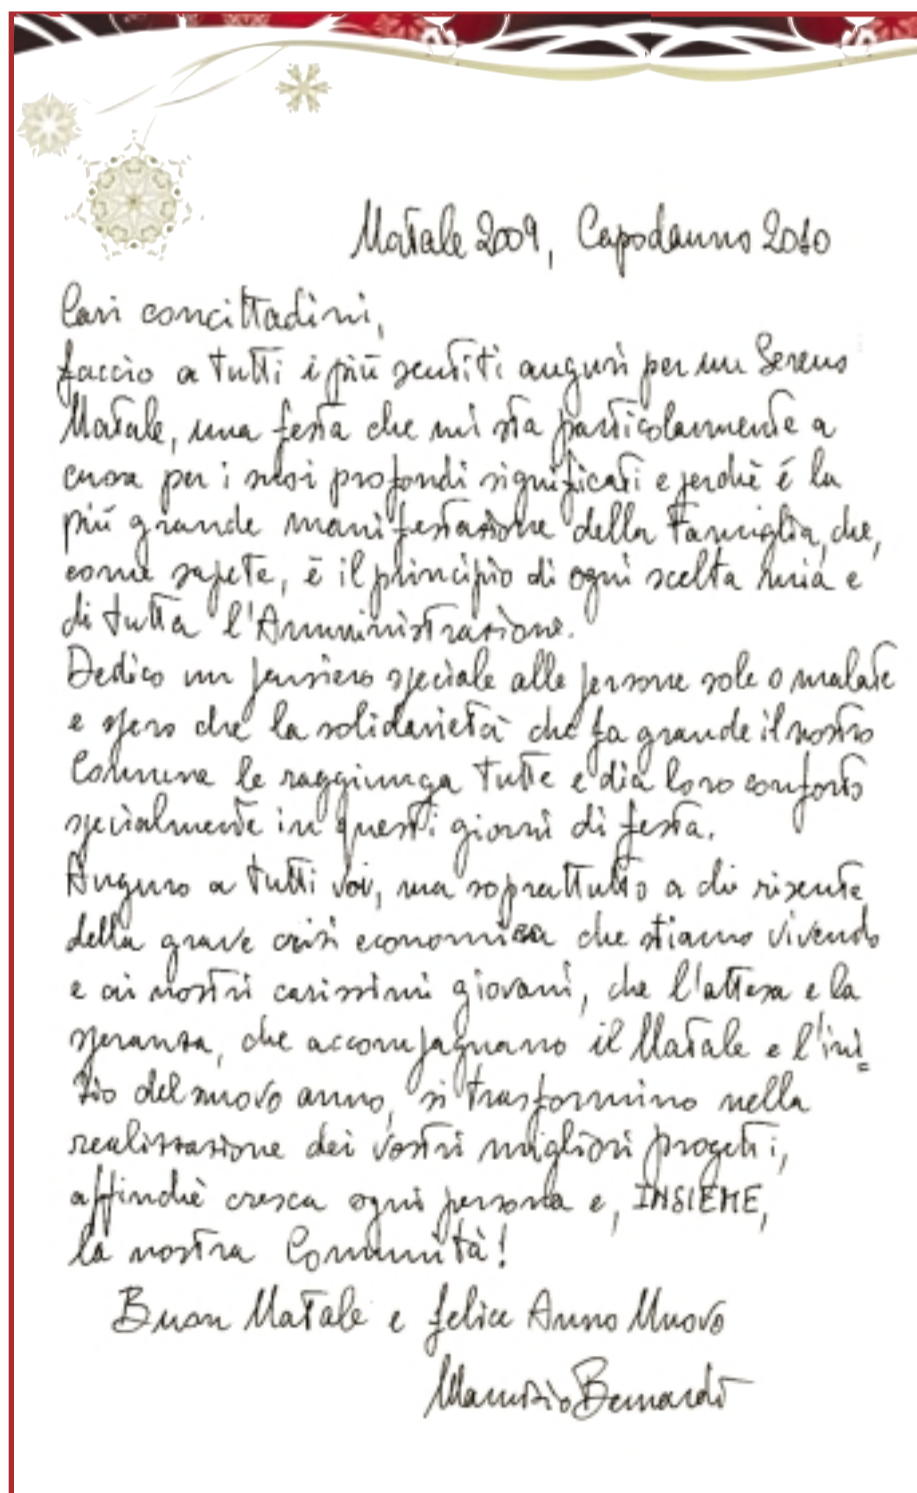 Natale 2009, Capodanno 2010
Cari concittadini,
faccio a tutti i più sentiti auguri per un Sereno
Natale, una festa che mi sta particolarmente a
cuore per i suoi profondi significati e perchè é la
più grande manifestazione della Famiglia, che,
come sapete, è il principio di ogni scelta mia e
di tutta l'Amministrazione.
Dedico un pensiero speciale alle persone sole o malate
e spero che la solidarietà che fa grande il nostro
Comune le raggiunga tutte e dia loro conforto
specialmente in questi giorni di festa.
Auguro a tutti voi, ma soprattutto a chi risente
della grave crisi economica che stiamo vivendo
e ai nostri carissimi giovani, che l'attesa e la
speranza, che accompagnano il Natale e l'ini=
zio del nuovo anno, si trasformino nella
realizzazione dei vostri migliori progetti,
affinchè cresca ogni persona e, INSIEME,
la nostra Comunità!
Buon Natale e felice Anno Nuovo
Maurizio Bernardi